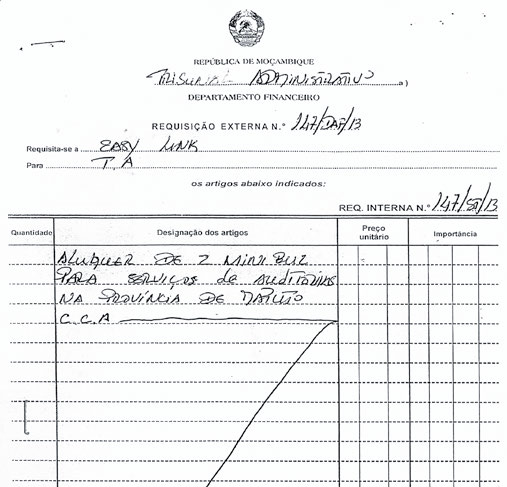 REPÚBLICA DE MOÇAMBIQUE
TRIBUNAL ADMINISTRATIVO a)
DEPARTAMENTO FINANCEIRO
REQUISIÇÃO EXTERNA N.° 147/DAF/13
Requisita-se a EASY LINK
Para T.A
os artigos abaixo indicados:
REQ. INTERNA N.° 147/SA/13
Quantidade Designação dos artigos Preço unitário Importância
ALUGUER DE 2 MINI BUZ
PARA SERVIÇOS de AUDITORIAS
NA PROVÍNCIA DE MAPUTO
C.C.A